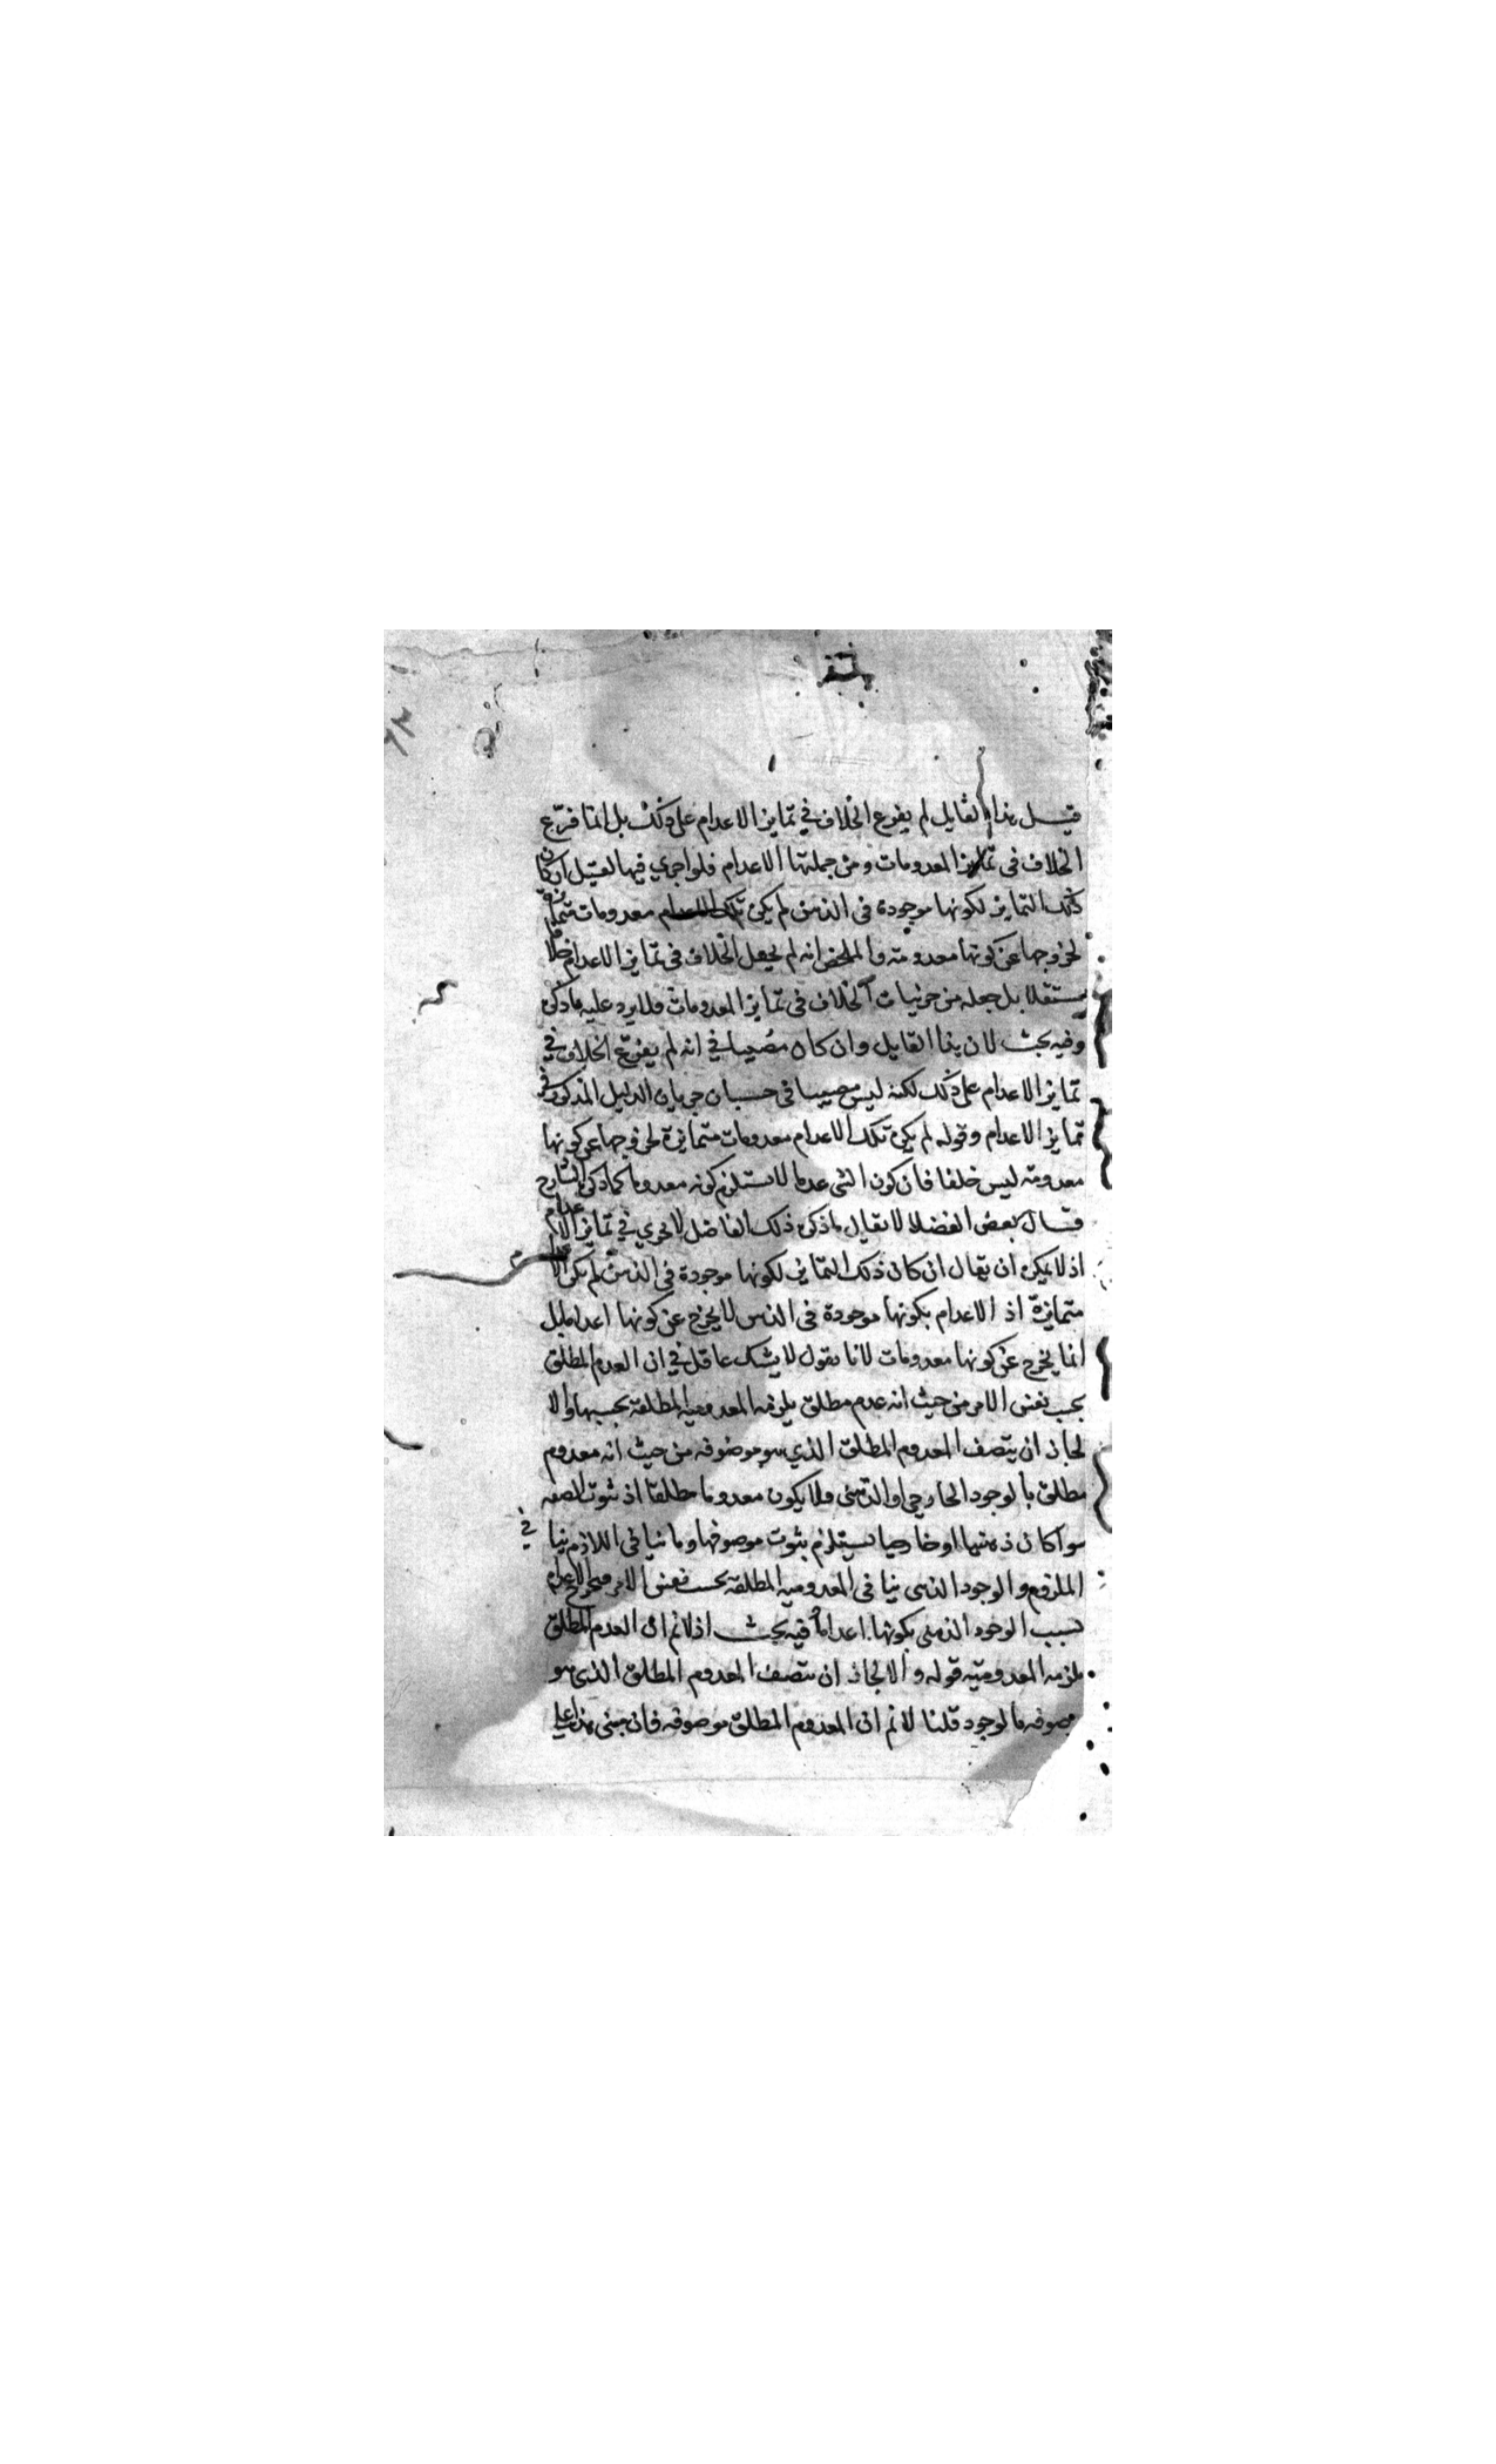 قيل هذا القايل لم يفرع الخلاف في تمايز الاعدام على ذلك بل انما فرّع
الخلاف فى تمايز المعدومات ومن جملتها الاعدام فلو اجرى فيها لقيل ان كان
ذلك التمايز لكونها موجودة فى الذهن لم يكن معدومات متمايزة
لخروجها عن كونها معدومة والملخص انه لم يجعل الخلاف فى تمايز الاعدام خلافا
مستقلا بل جعله من جزئيات الخلاف فى تمايز المعدومات فلا يرد عليه ما ذكر
وفيه بحث لان هذا القايل وان كان مصيبا في انه لم يفرّع الخلاف في
تمايز الاعدام على ذلك لكنه ليس مصيبا فى حسبان جريان الدليل المذكور فى
تمايز الاعدام وقوله لم يكن تلك الاعدام معدومات متمايزة لخروجها عن كونها
معدومة ليس خلفا فان كون الشى عدما لا يستلزم كونه معدوما كما ذكره الشارح
قال بعض الفضلا لا يقال ما ذكره ذلك الفاضل لا يجري في تمايز الاعدام
اذ لا يمكن ان يقال ان كان ذلك التمايز لكونها موجودة فى الذهن لم يكن الاعدام
متمايزة اذ الاعدام بكونها موجودة فى الذهن لا يخرج عن كونها اعداما بل
انما يخرج عن كونها معدومات لانا نقول لا يشك عاقل في ان العدم المطلق
بحسب نفس الامر من حيث انه عدم مطلق يلزمه المعدومية المطلقة بحسبها والا
لجاز ان يتصف المعدوم المطلق الذي هو موصوفه من حيث انه معدوم
مطلق بالوجود الخارجى او الذهنى فلا يكون معدوما مطلقا اذ ثبوت الصفة
سوآ كان ذهنيا او خارجيا يستلزم ثبوت موصوفها وما ينافى اللازم ينافي
الملزوم والوجود الذهنى ينافى المعدومية المطلقة بحسب نفس الامر فيخرج الاعدام
بسبب الوجود الذهنى بكونها اعداما وفيه بحث اذ لا نم ان العدم المطلق
يلزمه المعدومية قوله والا لجاز ان يتصف المعدوم المطلق الذى هو
موصوفه بالوجود قلنا لا نم ان المعدوم المطلق موصوفه فان مبنى هذا على